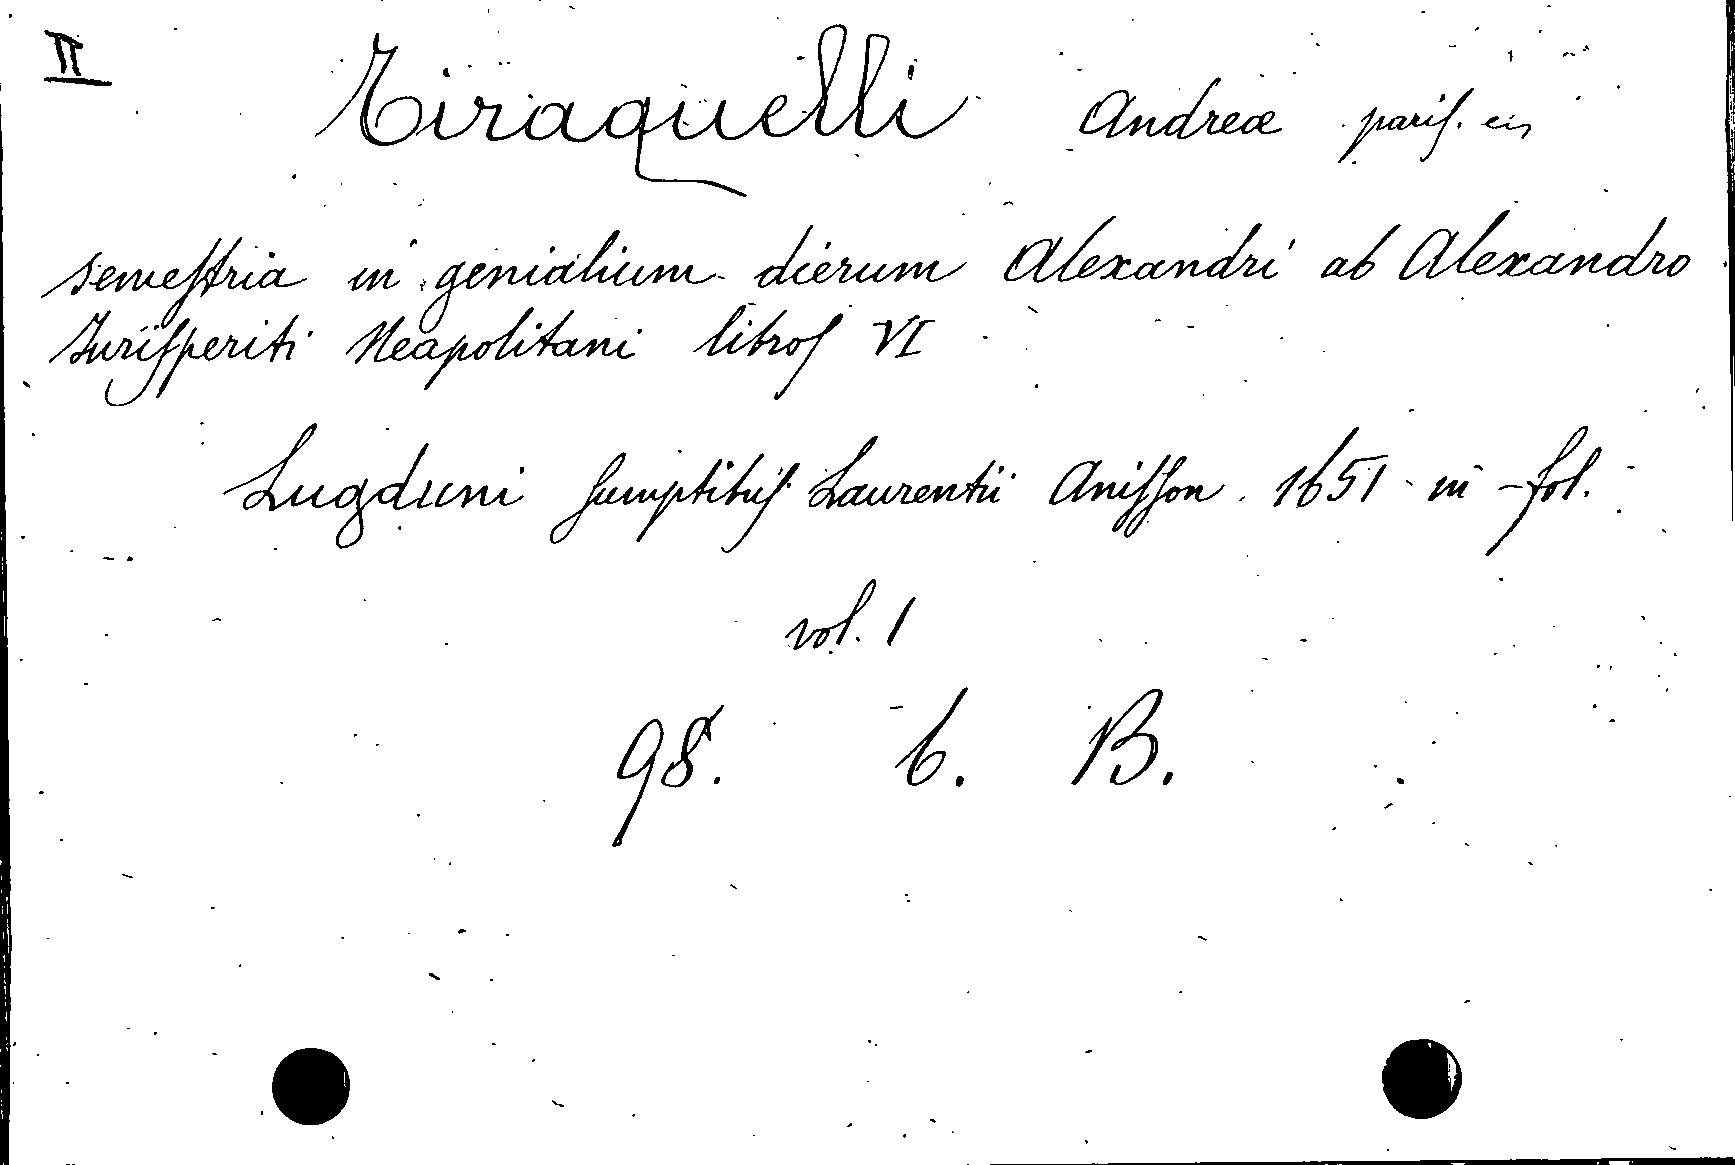 II
Tiraquelli Andreæ paris.
semestria in genialium dierum Alexandri ab Alexandro
Jurisperiti Neapolitani libros VI
Lugduni sumptibus Laurentii Anisson 1651 in-fol.
vol. 1
98. 6. B.